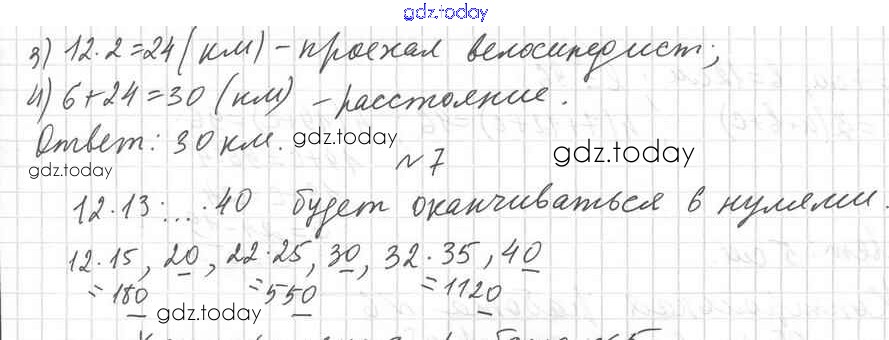 gdz.today
3) 12·2=24 (км) – проехал велосипедист;
4) 6+24=30 (км) – расстояние.
Ответ: 30 км. gdz.today
gdz.today №7 gdz.today
12·13·...·40 будет оканчиваться 6 нулями.
12·15, 20, 22·25, 30, 32·35, 40
=180 =550 =1120
gdz.today